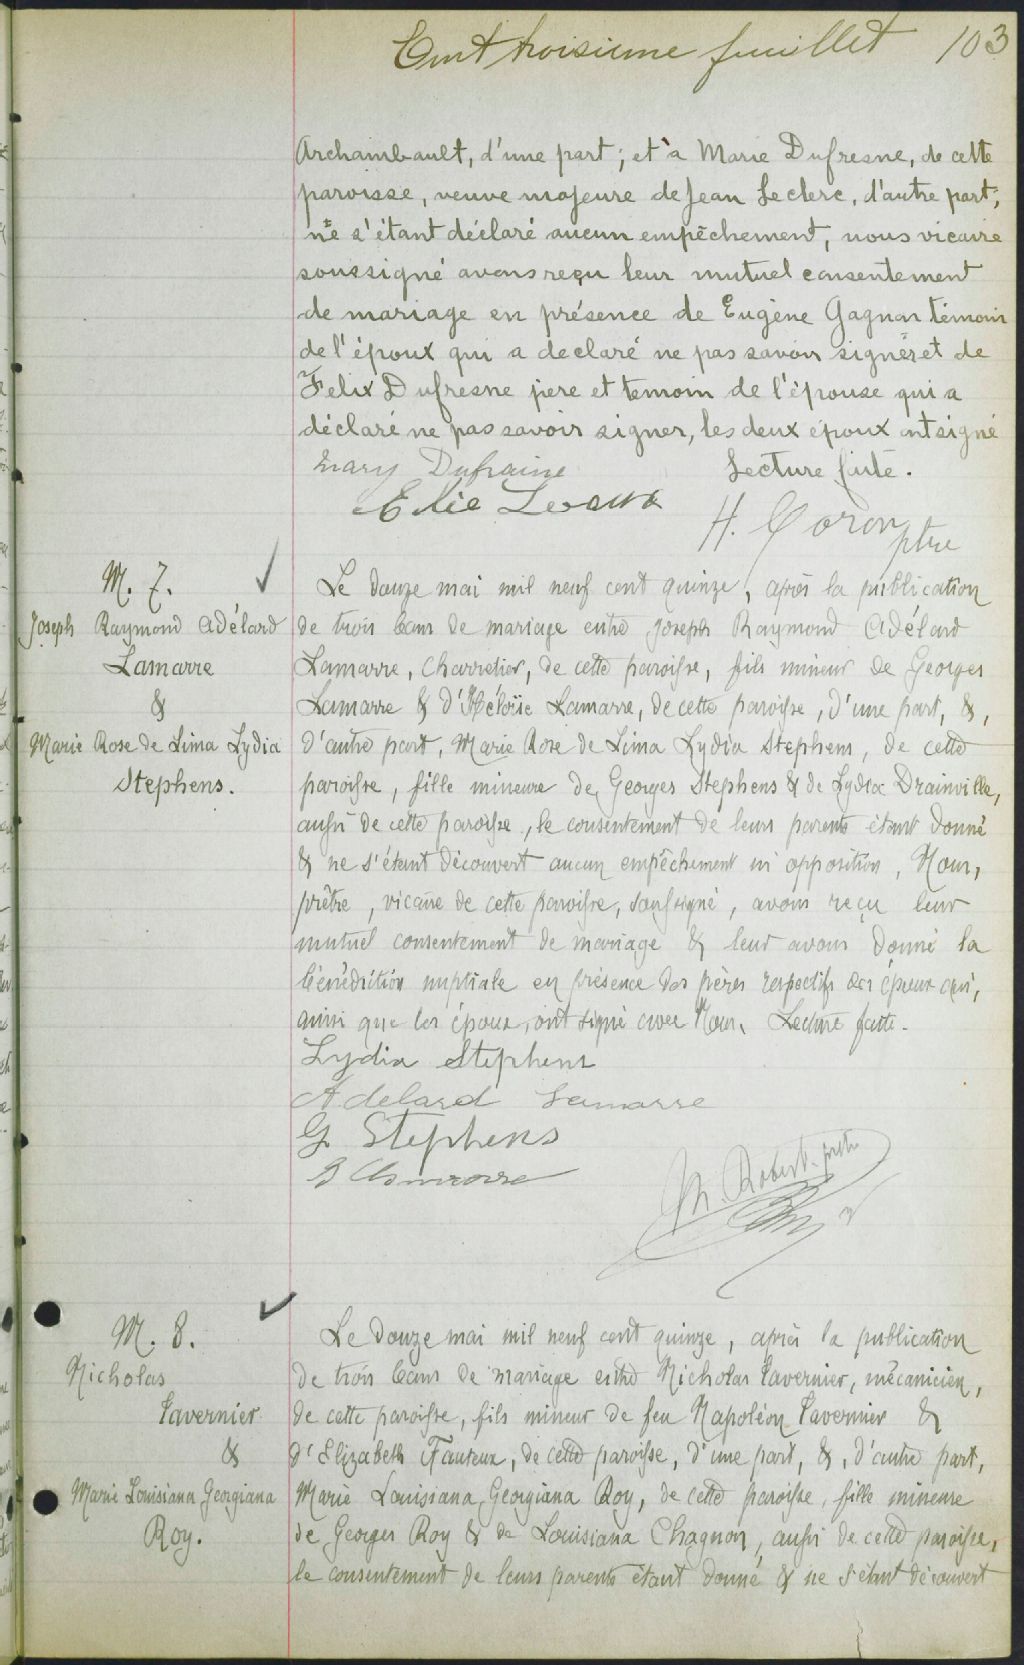 Cent troisième feuillet 103
Archambault, d'une part; et à Marie Dufresne, de cette
paroisse, veuve majeure de Jean Leclerc, d'autre part;
ne s'étant déclaré aucun empêchement, nous vicaire
soussigné avons reçu leur mutuel consentement
de mariage en présence de Eugène Gagnon témoin
de l'époux qui a declaré ne pas savoir signer et de
Felix Dufresne père et temoin de l'épouse qui a
déclaré ne pas savoir signer, les deux époux ont signé
Mary Dufraine Lecture faite.
Elie
H. Coron ptre
M. 7.
Joseph Raymond Adélard
Lamarre
&
Marie Rose de Lima Lydia
Stephens.
Le douze mai mil neuf cent quinze, après la publication
de trois bans de mariage entre Joseph Raymond Adélard
Lamarre, charretier, de cette paroisse, fils mineur de Georges
Lamarre & d'Héloïse Lamarre, de cette paroisse, d'une part, &,
d'autre part, Marie Rose de Lima Lydia Stephens, de cette
paroisse, fille mineure de Georges Stephens & de Lydia Drainville,
aussi de cette paroisse, le consentement de leurs parents étant donné
& ne s'étant découvert aucun empêchement ni opposition, Nous,
prêtre, vicaire de cette paroisse, soussigné, avons reçu leur
mutuel consentement de mariage & leur avons donné la
bénédiction nuptiale en présence des pères respectifs des époux qui,
ainsi que les époux, ont signé avec Nous. Lecture faite.
Lydia Stephens
Adelard Lamarre
G. Stephens
G Lamarre
M. Robert, ptre
M. 8.
Nicholas
Tavernier
&
Marie Louisiana Georgiana
Roy.
Le douze mai mil neuf cent quinze, après la publication
de trois bans de mariage entre Nicholas Tavernier, mécanicien,
de cette paroisse, fils mineur de feu Napoléon Tavernier &
d'Elizabeth Fauteux, de cette paroisse, d'une part, &, d'autre part,
Marie Louisiana Georgiana Roy, de cette paroisse, fille mineure
de Georges Roy & de Louisiana Chagnon, aussi de cette paroisse,
le consentement de leurs parents étant donné & ne s'étant découvert